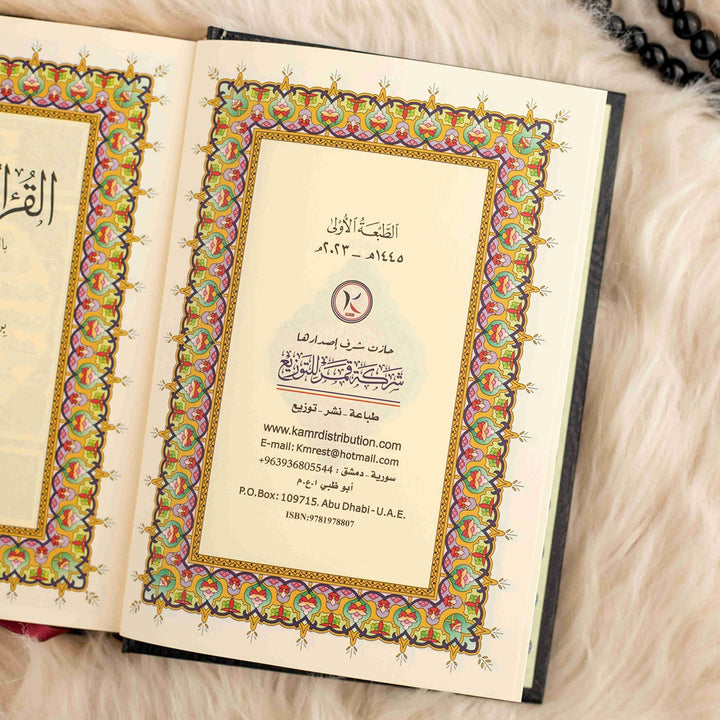 الطَّبْعَةُ الأُولَى
١٤٤٥هـ - ٢٠٢٣م
حازت شرف إصدارها
شركة قمر للتوزيع
طباعة - نشر - توزيع
www.kamrdistribution.com
E-mail: Kmrest@hotmail.com
سورية - دمشق : 963936805544+
أبو ظبي ا.ع.م
P.O.Box: 109715, Abu Dhabi - U.A.E.
ISBN:9781978807